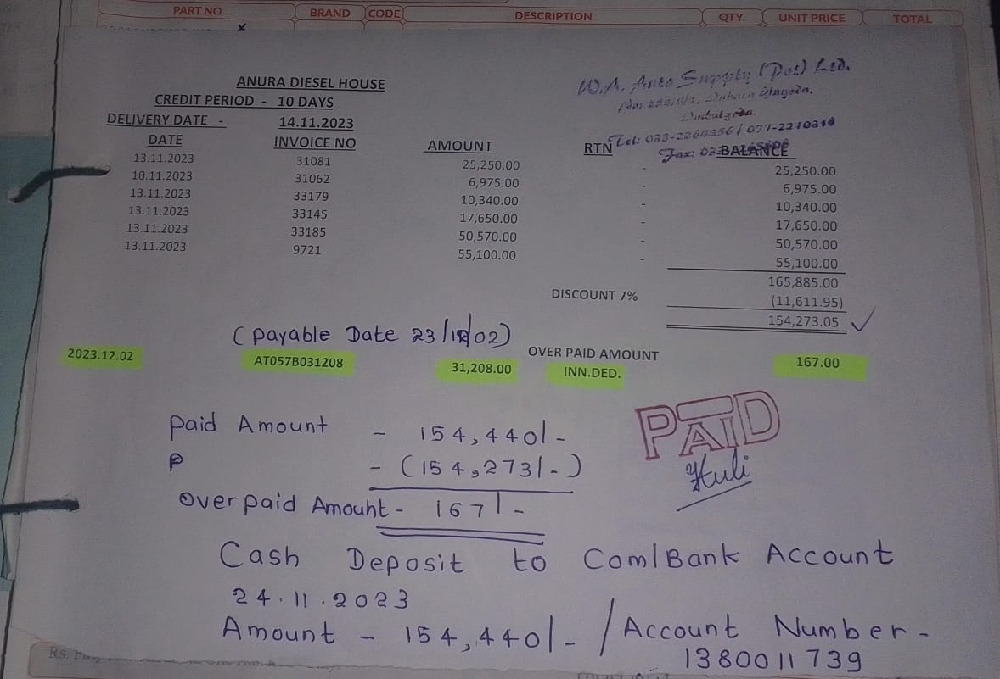 PART NO BRAND CODE DESCRIPTION QTY UNIT PRICE TOTAL
ANURA DIESEL HOUSE
CREDIT PERIOD - 10 DAYS
DELIVERY DATE - 14.11.2023
W.A. Auto Supply (Pvt) Ltd.
DATE INVOICE NO AMOUNT RTN BALANCE
13.11.2023 31081 25,250.00 - 25,250.00
10.11.2023 31062 6,975.00 - 6,975.00
13.11.2023 33179 10,340.00 - 10,340.00
13.11.2023 33145 17,650.00 - 17,650.00
13.11.2023 33185 50,570.00 - 50,570.00
13.11.2023 9721 55,100.00 - 55,100.00
165,885.00
DISCOUNT 7% (11,611.95)
154,273.05
(Payable Date 23/12/02)
OVER PAID AMOUNT
2023.12.02 AT057B031208 31,208.00 INN.DED. 167.00
Paid Amount - 154,440/-
P - (154,273/-)
Over paid Amount - 167/-
PAID
Cash Deposit to Com/Bank Account
24.11.2023
Amount - 154,440/- / Account Number -
1380011739